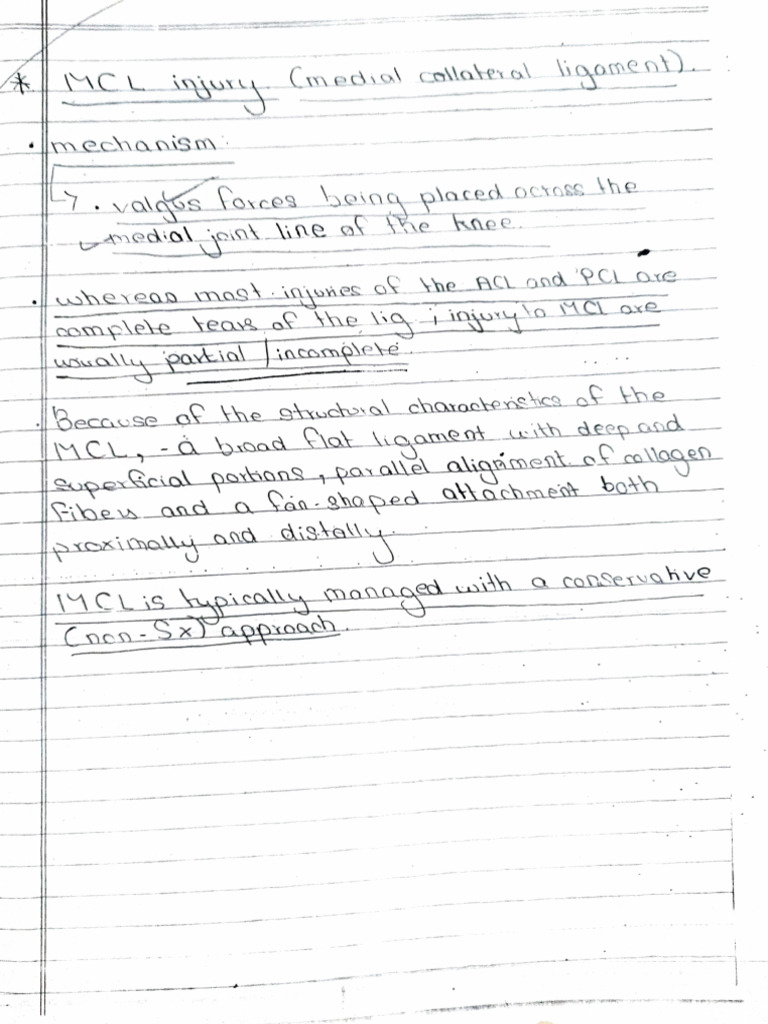 * MCL injury. (medial collateral ligament).
• mechanism:
↳ • valgus forces being placed across the
medial joint line of the knee.
• whereas most injuries of the ACL and PCL are
complete tears of the lig ; injury to MCL are
usually partial / incomplete.
• Because of the structural characteristics of the
MCL, - a broad flat ligament with deep and
superficial portions, parallel alignment of collagen
fibers and a fan-shaped attachment both
proximally and distally.
MCL is typically managed with a conservative
(non-Sx) approach.